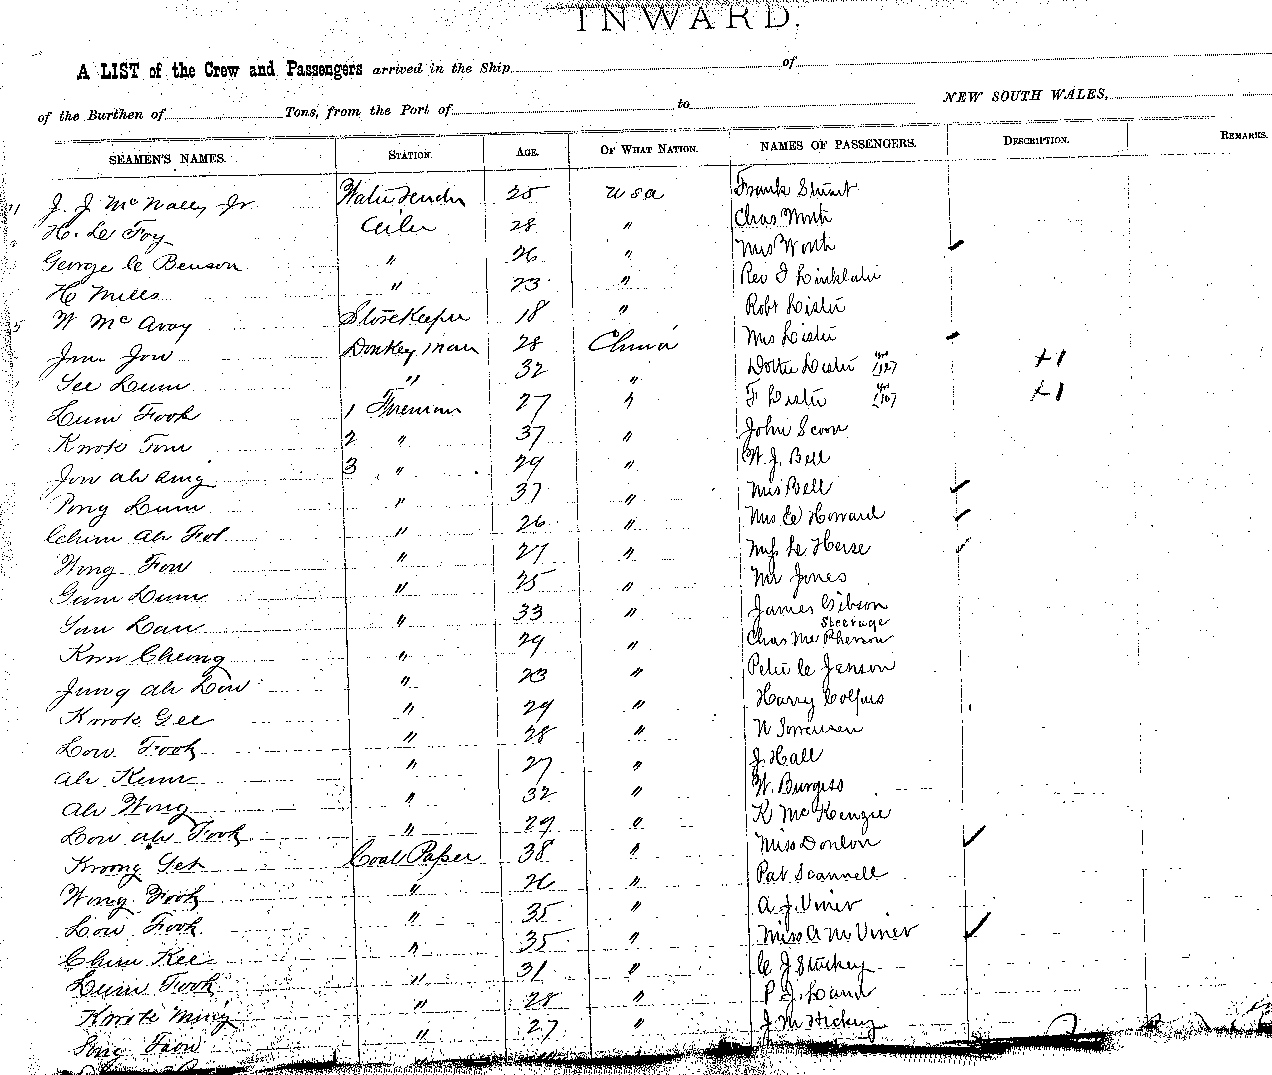 INWARD.
A LIST of the Crew and Passengers arrived in the Ship of
of the Burthen of Tons, from the Port of to NEW SOUTH WALES,
SEAMEN'S NAMES. STATION. AGE. OF WHAT NATION. NAMES OF PASSENGERS. DESCRIPTION. REMARKS.
J. J. McNally Jr Water Tender 25 USA Frank Stuart
H. Le Foy Oiler 28 " Chas Worth
George C Benson " 26 " Mrs Worth
H Mills " 23 " Rev F Linklater
W McAvoy Storekeeper 18 " Robt Lister
Jow Donkeyman 28 China Mrs Lister
See Lum " 32 " Lister +1
Lum Fook 1 Fireman 27 " F Lister +1
Kwok Tom 2 " 37 " John Scoon
Jow Ah 3 " 29 " W. J. Bell
Pong Lum " 37 " Mrs Bell
Chim Ah Fot " 26 " Mrs Howard
Wong Fow " 27 " Herse
Gum Lum " 25 " Mr Jones
San Lau " 33 " James Gibson
Steerage
Kum Cheong " 29 " Chas McPherson
Jung Ah Low " 23 " Peter C Jenson
Kwok Gee " 29 " Harry
Low Fook " 28 " N Sorensen
Ah Kum " 27 " J Hall
Ah Wong " 32 " W. Burgess
Low Ah Fook " 29 " K McKenzie
Kwong Get Coal Passer 38 " Miss Donlon
Wong Fook " 26 " Pat Scannell
Low Fook " 35 " A. J. Viner
Chim Kee " 35 " Miss A M Viner
Lum Fook " 31 " C J Stuckey
Kwok Ming " 28 " P J Land
Fong " 27 " J M Hickey